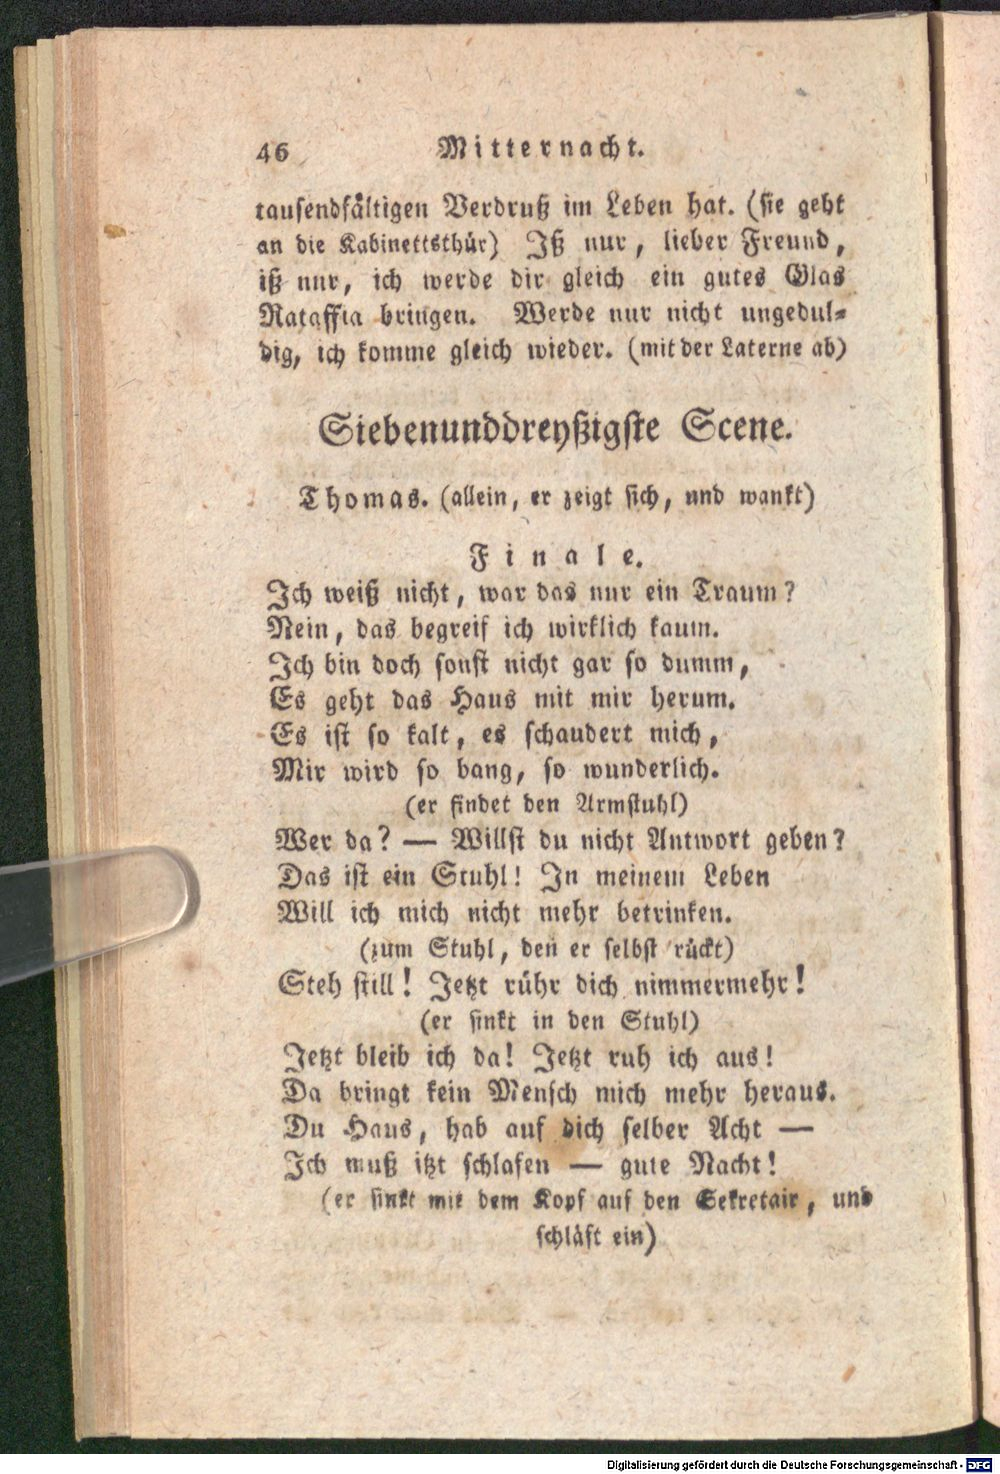 46 Mitternacht.
tausendfältigen Verdruß im Leben hat. (sie geht
an die Kabinettsthür) Iß nur, lieber Freund,
iß nur, ich werde dir gleich ein gutes Glas
Rataffia bringen. Werde nur nicht ungedul-
dig, ich komme gleich wieder. (mit der Laterne ab)
Siebenunddreyßigste Scene.
Thomas. (allein, er zeigt sich, und wankt)
Finale.
Ich weiß nicht, war das nur ein Traum?
Nein, das begreif ich wirklich kaum.
Ich bin doch sonst nicht gar so dumm,
Es geht das Haus mit mir herum.
Es ist so kalt, es schaudert mich,
Mir wird so bang, so wunderlich.
(er findet den Armstuhl)
Wer da? — Willst du nicht Antwort geben?
Das ist ein Stuhl! In meinem Leben
Will ich mich nicht mehr betrinken.
(zum Stuhl, den er selbst rückt)
Steh still! Jetzt rühr dich nimmermehr!
(er sinkt in den Stuhl)
Jetzt bleib ich da! Jetzt ruh ich aus!
Da bringt kein Mensch mich mehr heraus.
Du Haus, hab auf dich selber Acht —
Ich muß itzt schlafen — gute Nacht!
(er sinkt mit dem Kopf auf den Sekretair, und
schläft ein)
Digitalisierung gefördert durch die Deutsche Forschungsgemeinschaft - DFG